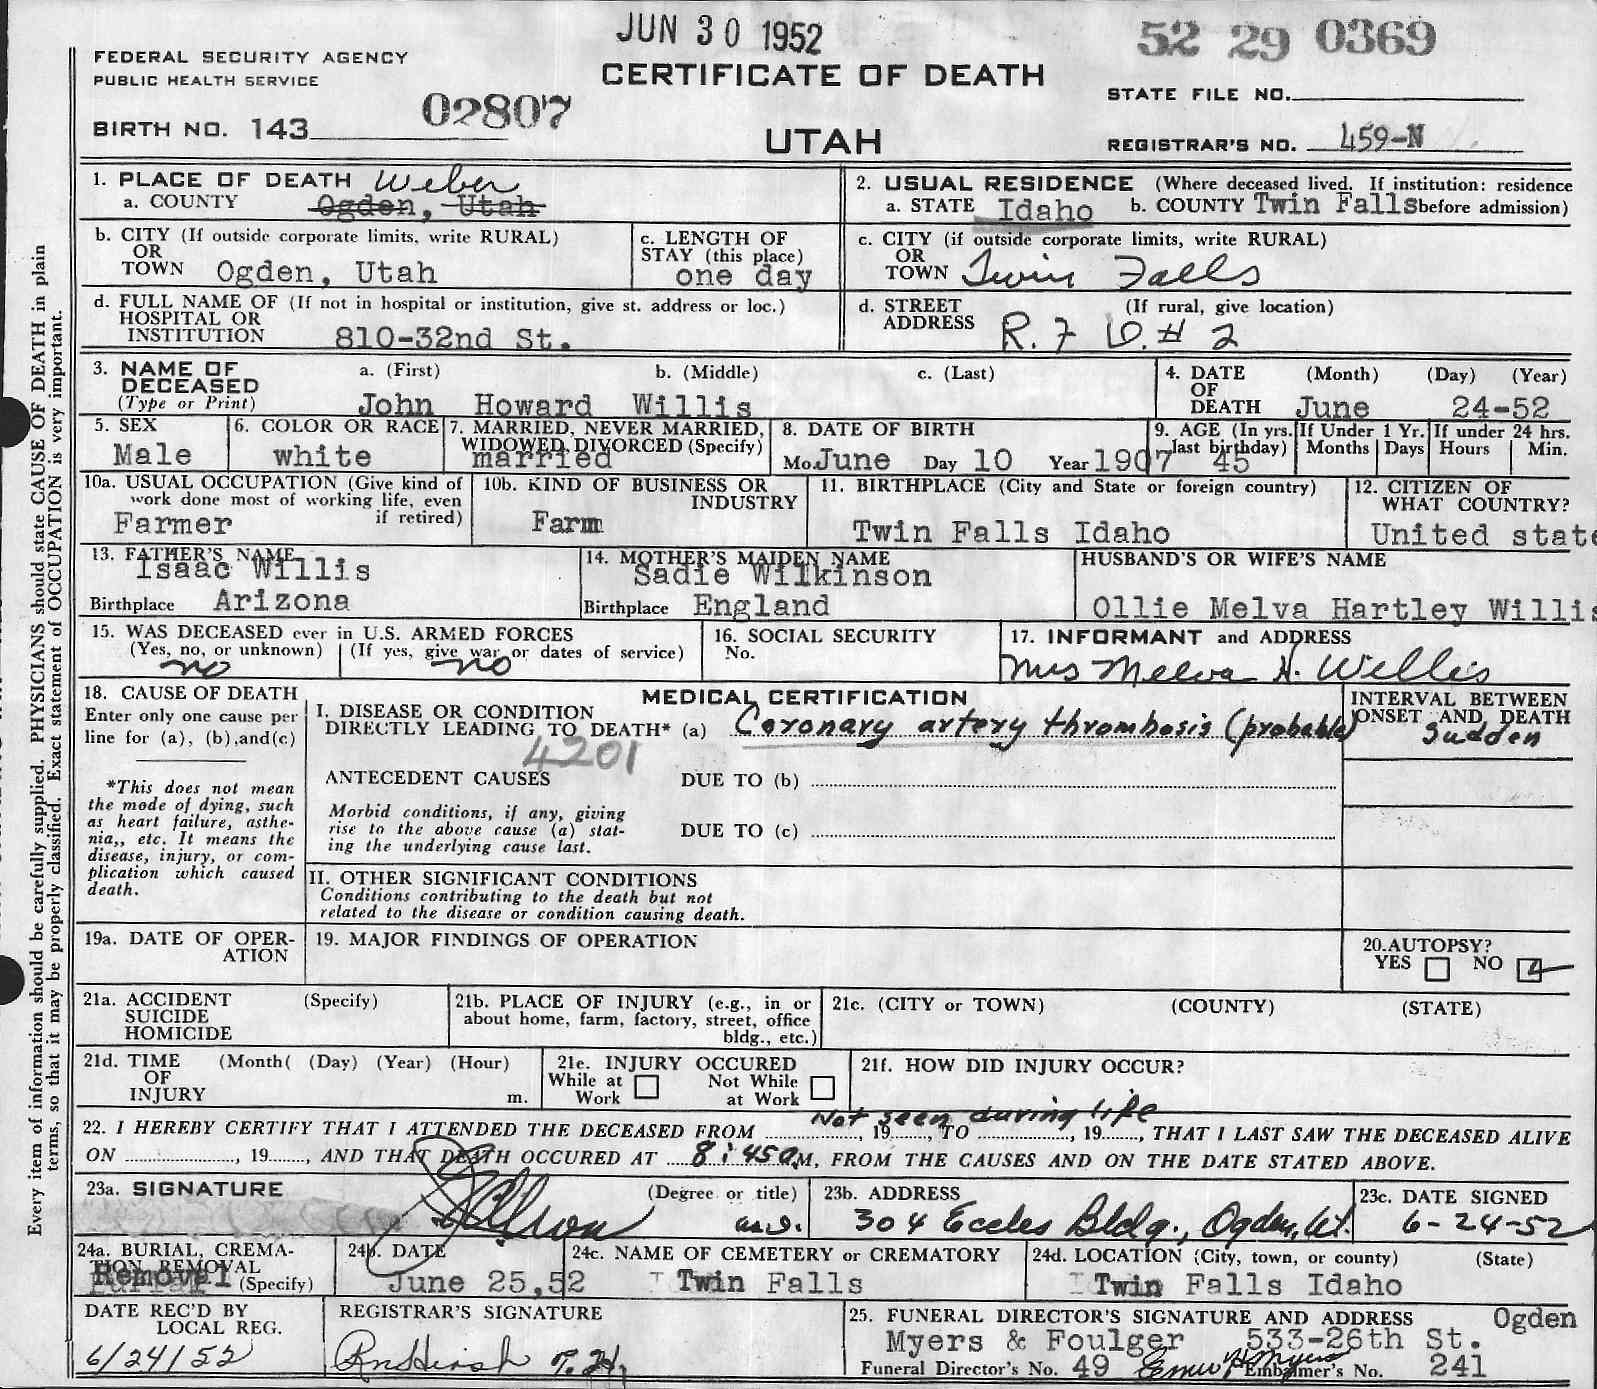 JUN 30 1952
52 29 0369
FEDERAL SECURITY AGENCY
PUBLIC HEALTH SERVICE
CERTIFICATE OF DEATH
STATE FILE NO.
02807
BIRTH NO. 143
UTAH
REGISTRAR'S NO. 459-N
1. PLACE OF DEATH Weber
a. COUNTY Ogden, Utah
2. USUAL RESIDENCE (Where deceased lived. If institution: residence
a. STATE Idaho b. COUNTY Twin Falls before admission)
b. CITY (If outside corporate limits, write RURAL)
OR
TOWN Ogden, Utah
c. LENGTH OF
STAY (this place)
one day
c. CITY (if outside corporate limits, write RURAL)
OR
TOWN Twin Falls
d. FULL NAME OF (If not in hospital or institution, give st. address or loc.)
HOSPITAL OR
INSTITUTION 810-32nd St.
d. STREET (If rural, give location)
ADDRESS R. F D. # 2
3. NAME OF a. (First) b. (Middle) c. (Last)
DECEASED
(Type or Print) John Howard Willis
4. DATE (Month) (Day) (Year)
OF
DEATH June 24-52
5. SEX
Male
6. COLOR OR RACE
white
7. MARRIED, NEVER MARRIED,
WIDOWED, DIVORCED (Specify)
married
8. DATE OF BIRTH
Mo. June Day 10 Year 1907
9. AGE (In yrs.
last birthday)
45
If Under 1 Yr.
Months Days
If under 24 hrs.
Hours Min.
10a. USUAL OCCUPATION (Give kind of
work done most of working life, even
if retired)
Farmer
10b. KIND OF BUSINESS OR
INDUSTRY
Farm
11. BIRTHPLACE (City and State or foreign country)
Twin Falls Idaho
12. CITIZEN OF
WHAT COUNTRY?
United state
13. FATHER'S NAME
Isaac Willis
Birthplace Arizona
14. MOTHER'S MAIDEN NAME
Sadie Wilkinson
Birthplace England
HUSBAND'S OR WIFE'S NAME
Ollie Melva Hartley Willis
15. WAS DECEASED ever in U.S. ARMED FORCES
(Yes, no, or unknown) (If yes, give war or dates of service)
no no
16. SOCIAL SECURITY
No.
17. INFORMANT and ADDRESS
Mrs Melva H. Willis
18. CAUSE OF DEATH
Enter only one cause per
line for (a), (b),and(c)
*This does not mean
the mode of dying, such
as heart failure, asthe-
nia,, etc. It means the
disease, injury, or com-
plication which caused
death.
MEDICAL CERTIFICATION
I. DISEASE OR CONDITION
DIRECTLY LEADING TO DEATH* (a) Coronary artery thrombosis (probable)
4201
ANTECEDENT CAUSES DUE TO (b)
Morbid conditions, if any, giving
rise to the above cause (a) stat-
ing the underlying cause last.
DUE TO (c)
II. OTHER SIGNIFICANT CONDITIONS
Conditions contributing to the death but not
related to the disease or condition causing death.
INTERVAL BETWEEN
ONSET AND DEATH
Sudden
19a. DATE OF OPER-
ATION
19. MAJOR FINDINGS OF OPERATION
20.AUTOPSY?
YES NO
21a. ACCIDENT (Specify)
SUICIDE
HOMICIDE
21b. PLACE OF INJURY (e.g., in or
about home, farm, factory, street, office
bldg., etc.)
21c. (CITY or TOWN) (COUNTY) (STATE)
21d. TIME (Month( (Day) (Year) (Hour)
OF
INJURY m.
21e. INJURY OCCURED
While at Not While
Work at Work
21f. HOW DID INJURY OCCUR?
Not seen during life
22. I HEREBY CERTIFY THAT I ATTENDED THE DECEASED FROM , 19 , TO , 19 , THAT I LAST SAW THE DECEASED ALIVE
ON , 19 , AND THAT DEATH OCCURED AT 8:45a M, FROM THE CAUSES AND ON THE DATE STATED ABOVE.
23a. SIGNATURE (Degree or title)
M.D.
23b. ADDRESS
304 Eccles Bldg., Ogden, Ut.
23c. DATE SIGNED
6-24-52
24a. BURIAL, CREMA-
TION, REMOVAL
Removal (Specify)
24b. DATE
June 25,52
24c. NAME OF CEMETERY or CREMATORY
Twin Falls
24d. LOCATION (City, town, or county) (State)
Twin Falls Idaho
DATE REC'D BY
LOCAL REG.
6/24/52
REGISTRAR'S SIGNATURE
25. FUNERAL DIRECTOR'S SIGNATURE AND ADDRESS Ogden
Myers & Foulger 533-26th St.
Funeral Director's No. 49 Embalmer's No. 241
Every item of information should be carefully supplied. PHYSICIANS should state CAUSE OF DEATH in plain
terms, so that it may be properly classified. Exact statement of OCCUPATION is very important.